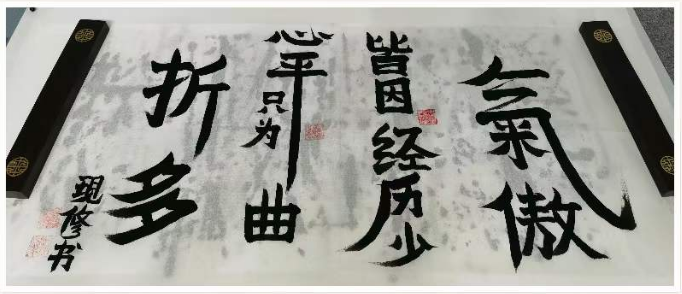 氣傲
皆因经历少
心平只为曲
折多
现修书